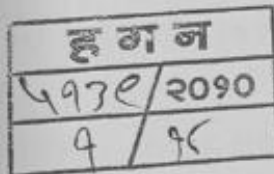 ह ग न
५१३९/२०१०
१/१८